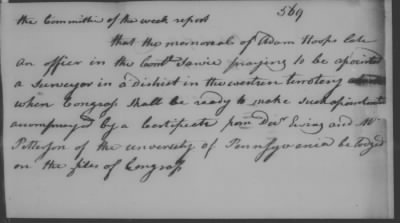 569
the Committee of the week report
that the memorial of Adam Hoops late
an officer in the Contl Service praying to be apointed
a Surveyor in a district in the western territory
when Congress shall be ready to make such apointments
accompanyed by a Certificate from Docr Ewing and Mr
Patterson of the university of Pennsylvania be lodged
on the files of Congress